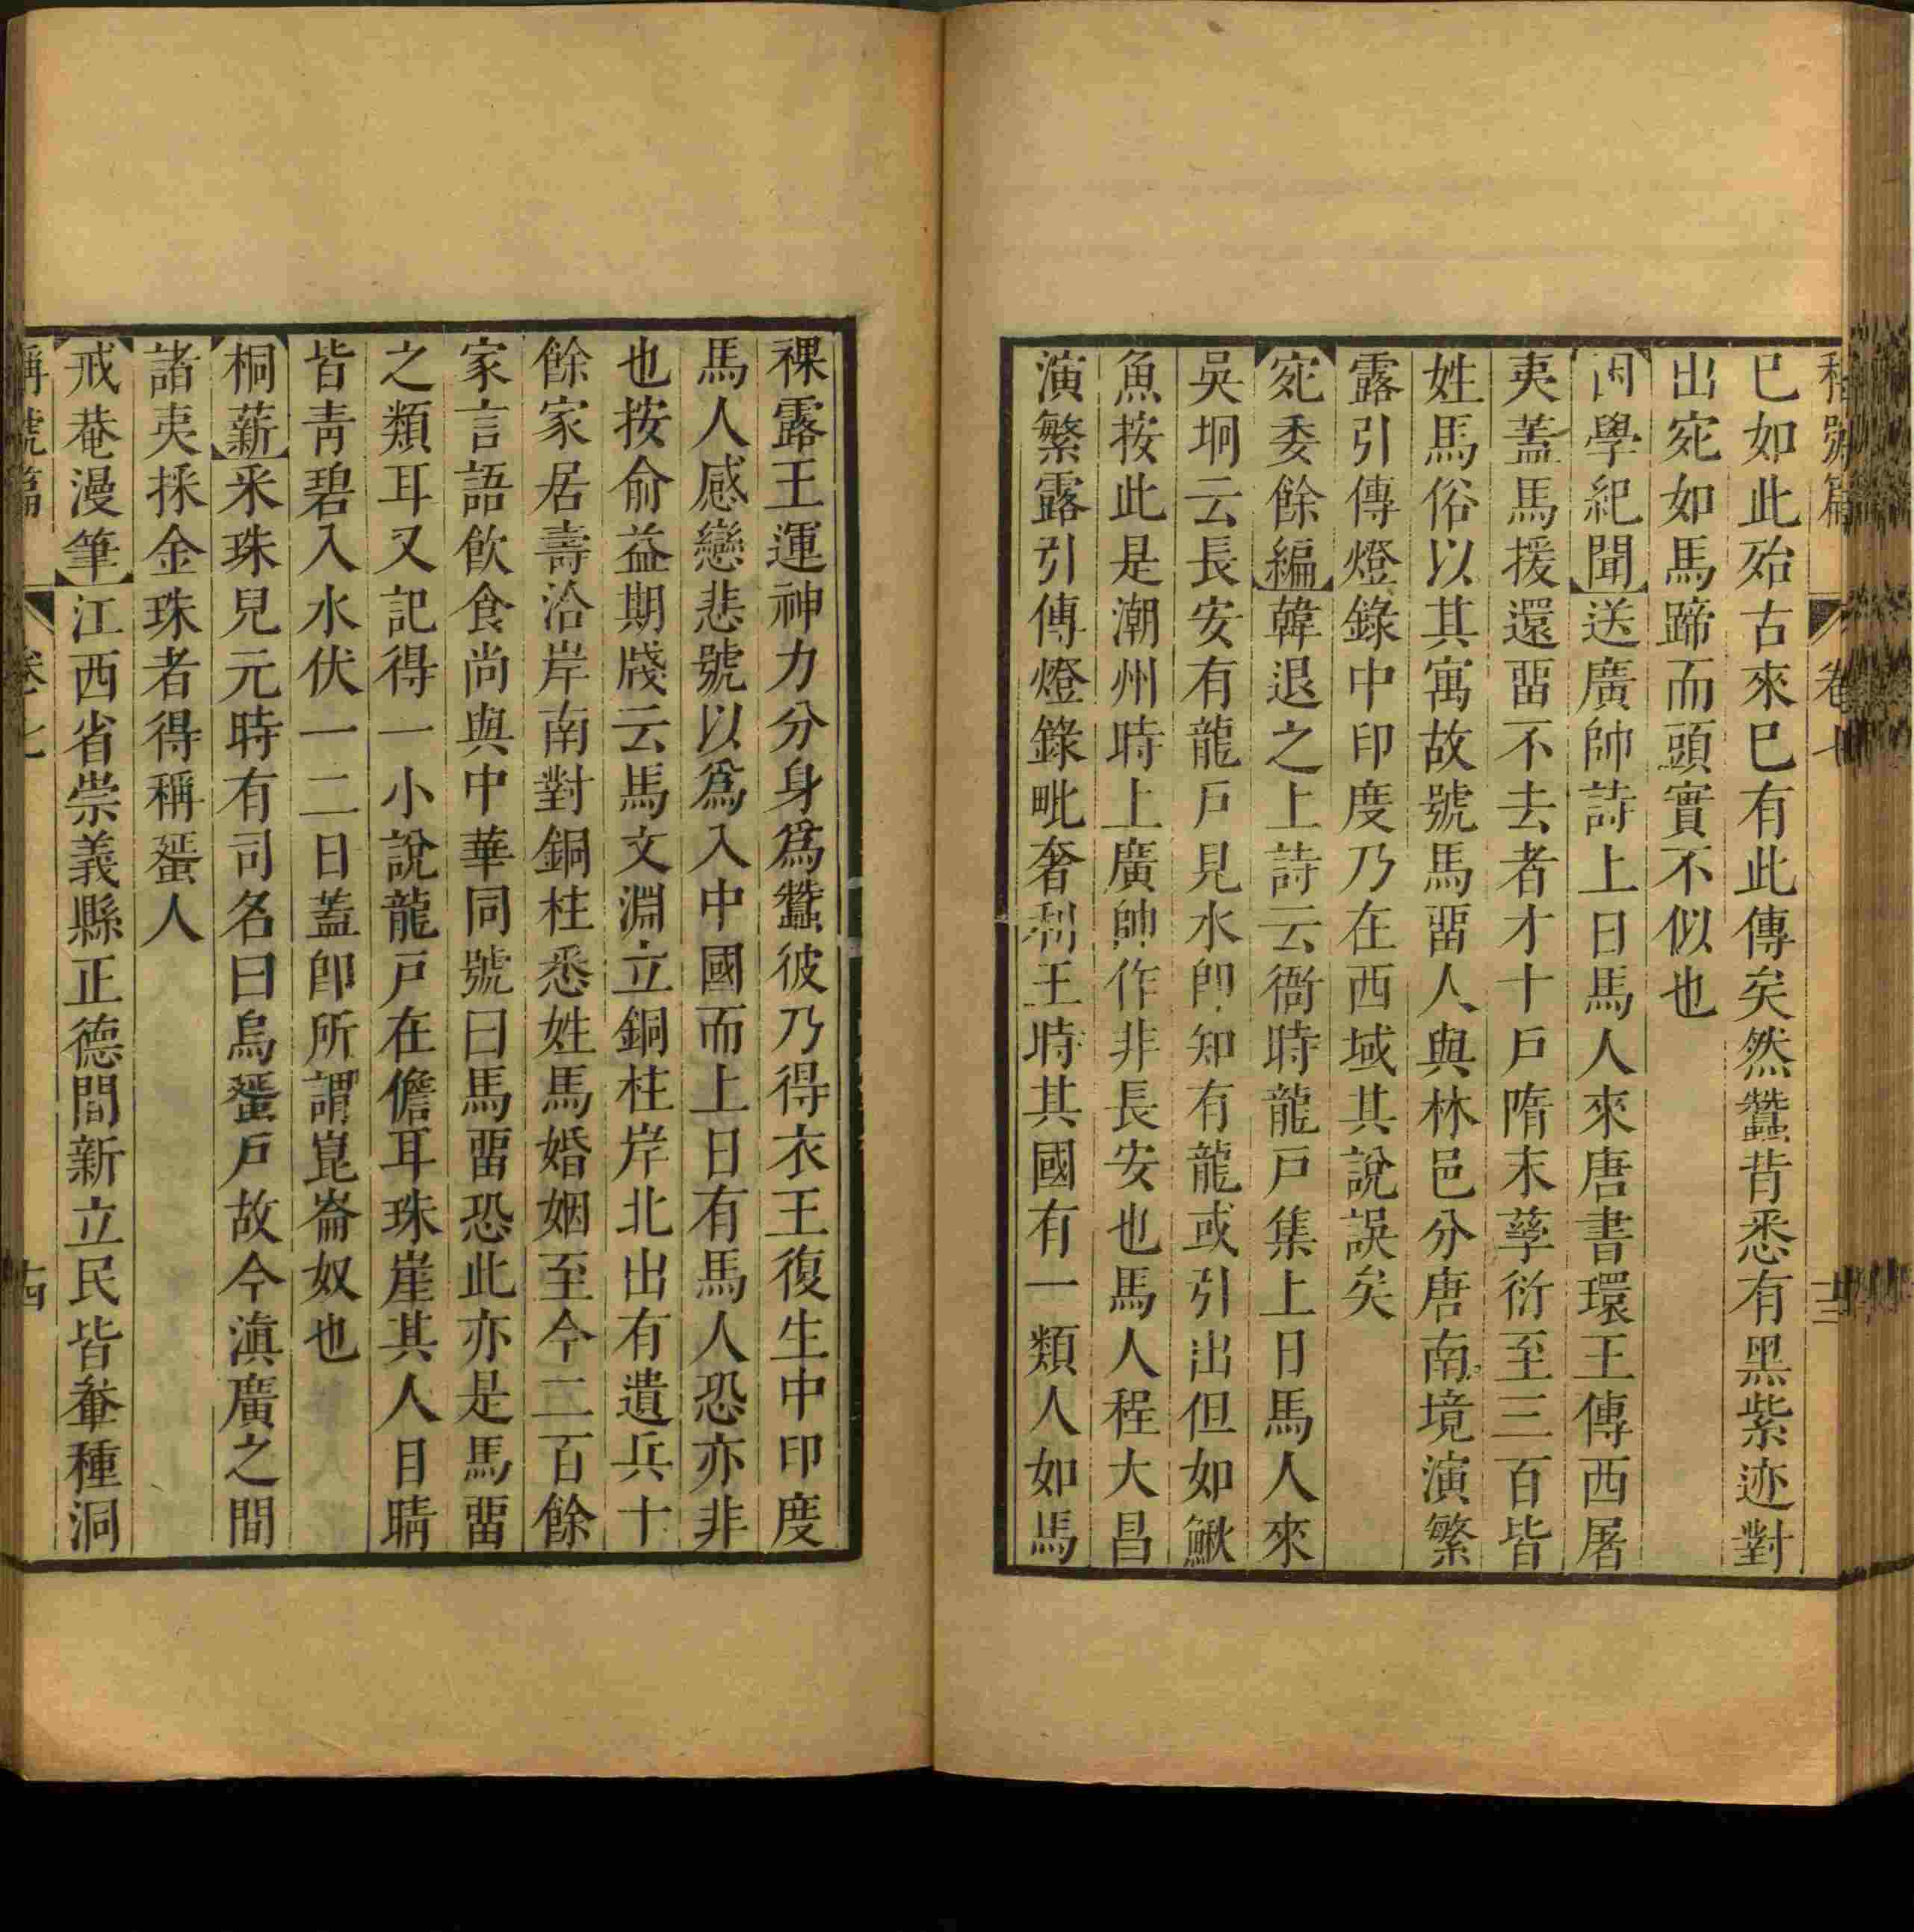 稱號篇 卷七 十三
已如此殆古來巳有此傳矣然蠶背悉有黑紫迹對
出宛如馬蹄而頭實不似也
困學紀聞送廣帥詩上日馬人來唐書環王傳西屠
夷蓋馬援還畱不去者才十戸隋末孳衍至三百皆
姓馬俗以其寓故號馬畱人與林邑分唐南境演繁
露引傳燈錄中印度乃在西域其說誤矣
宛委餘編韓退之上詩云衙時龍戸集上日馬人來
吳坰云長安有龍戸見水卽知有龍或引出但如鰍
魚按此是潮州時上廣帥作非長安也馬人程大昌
演繁露引傳燈錄毗奢利王時其國有一類人如馬
裸露王運神力分身爲蠶彼乃得衣王復生中印度
馬人感戀悲號以爲入中國而上日有馬人恐亦非
也按俞益期牋云馬文淵立銅柱岸北出有遺兵十
餘家居壽洽岸南對銅柱悉姓馬婚姻至今二百餘
家言語飲食尚與中華同號曰馬畱恐此亦是馬畱
之類耳又記得一小說龍戸在儋耳珠崖其人目睛
皆青碧入水伏一二日蓋卽所謂崑崙奴也
桐薪采珠兒元時有司名曰烏蜑戸故今滇廣之間
諸夷採金珠者得稱蜑人
戒菴漫筆江西省崇義縣正德間新立民皆輋種洞
稱號篇 卷七 十四